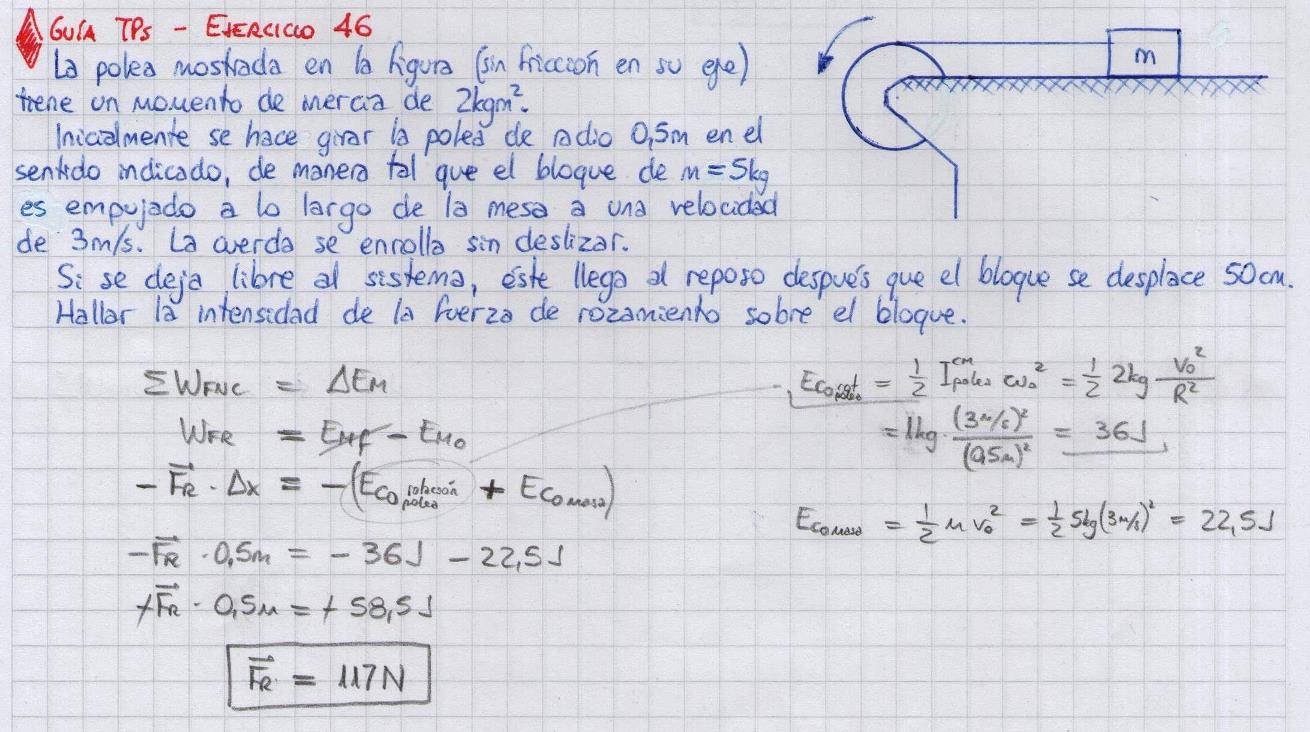 GUÍA TPs - EJERCICIO 46
La polea mostrada en la figura (sin fricción en su eje)
tiene un momento de inercia de 2kgm².
Inicialmente se hace girar la polea de radio 0,5m en el
sentido indicado, de manera tal que el bloque de m=5kg
es empujado a lo largo de la mesa a una velocidad
de 3m/s. La cuerda se enrolla sin deslizar.
Si se deja libre al sistema, éste llega al reposo después que el bloque se desplace 50cm.
Hallar la intensidad de la fuerza de rozamiento sobre el bloque.
m
ΣW_FNC = ΔE_M
W_FR = E_Mf - E_M0
- F⃗_R · Δx = -(E_C0 rotación polea + E_C0 masa)
-F⃗_R · 0,5m = - 36J - 22,5J
+F⃗_R · 0,5m = + 58,5J
F⃗_R = 117N
E_C0 rot polea = 1/2 I_polea^CM ω₀² = 1/2 2kg V₀²/R²
= 1kg · (3m/s)²/(0,5m)² = 36J
E_C0 masa = 1/2 m v₀² = 1/2 5kg(3m/s)² = 22,5J